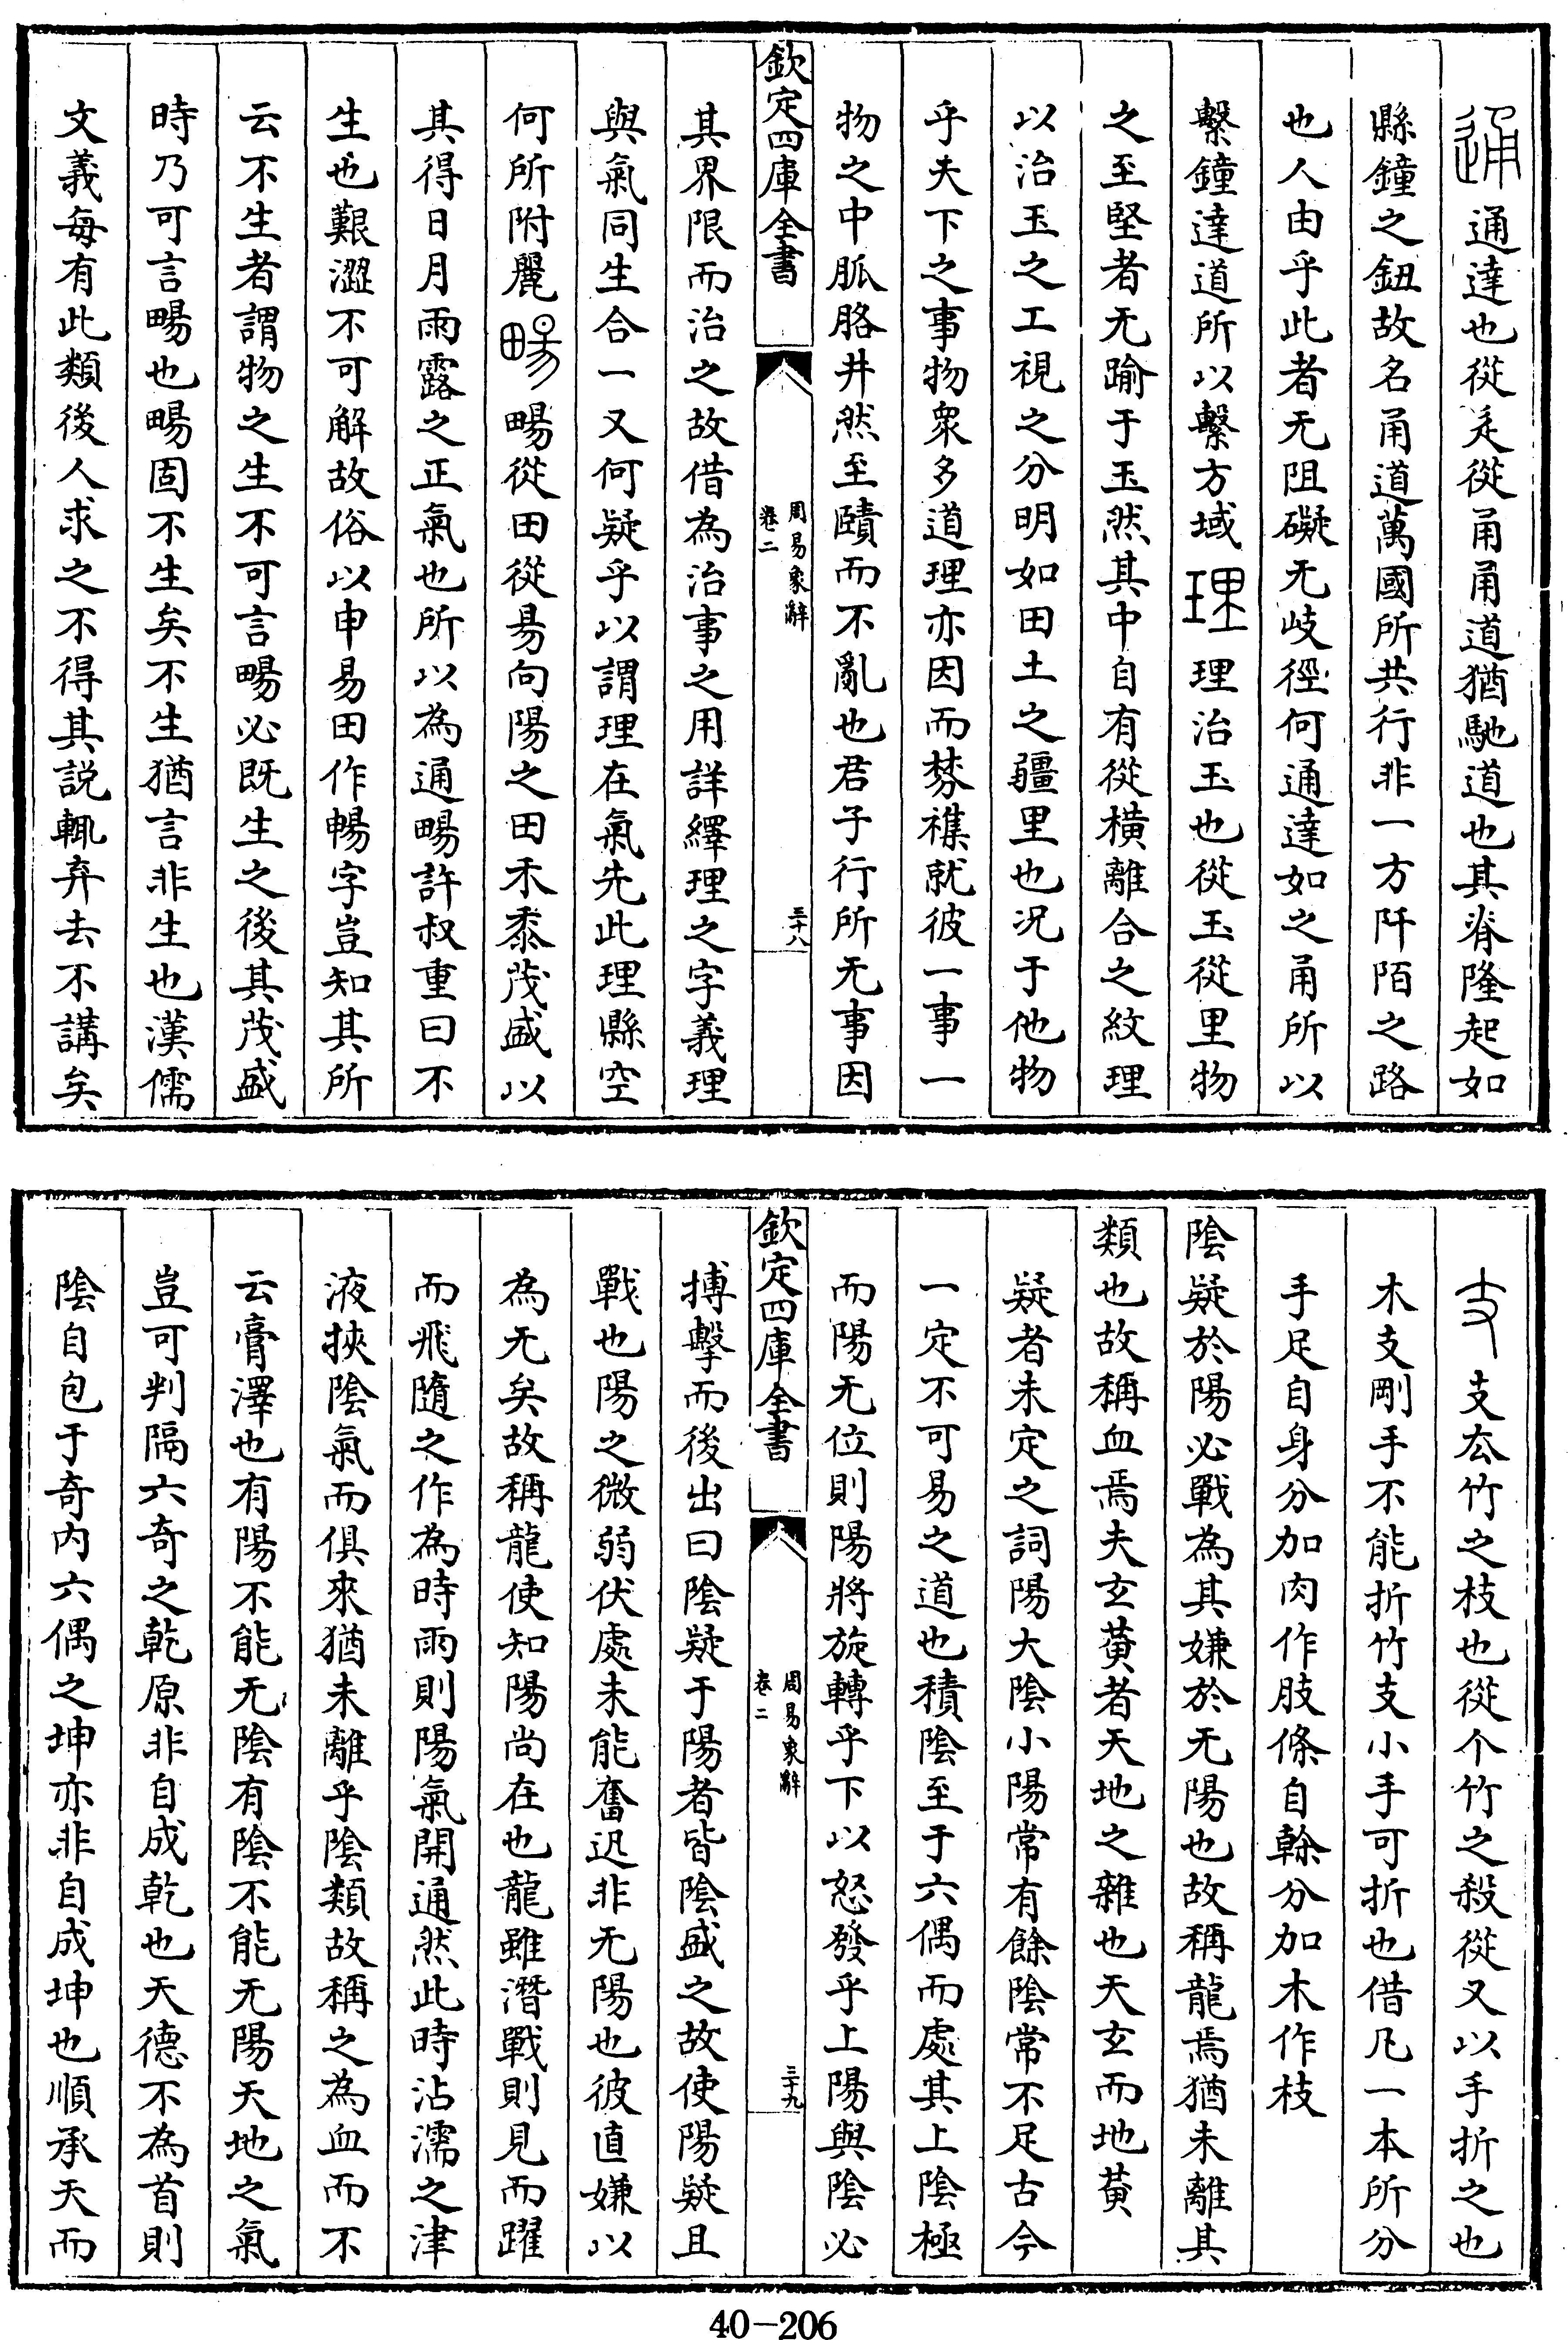 通通達也從辵從甬甬道猶馳道也其脊隆起如
縣鐘之鈕故名甬道萬國所共行非一方阡陌之路
也人由乎此者无阻礙无岐徑何通達如之甬所以
繫鐘達道所以繫方域理理治玉也從玉從里物
之至堅者无踰于玉然其中自有從橫離合之紋理
以治玉之工視之分明如田土之疆里也况于他物
乎夫下之事物衆多道理亦因而棼襍就彼一事一
物之中脈胳井然至賾而不亂也君子行所无事因
欽定四庫全書
周易象辭
卷二
三十八
其界限而治之故借為治事之用詳繹理之字義理
與氣同生合一又何疑乎以謂理在氣先此理縣空
何所附麗畼畼從田從昜向陽之田禾黍茂盛以
其得日月雨露之正氣也所以為通畼許叔重曰不
生也艱澀不可解故俗以申易田作暢字豈知其所
云不生者謂物之生不可言畼必既生之後其茂盛
時乃可言畼也畼固不生矣不生猶言非生也漢儒
文義每有此類後人求之不得其説輒弃去不講矣
支支厺竹之枝也從个竹之殺從又以手折之也
木支剛手不能折竹支小手可折也借凡一本所分
手足自身分加肉作肢條自榦分加木作枝
陰疑於陽必戰為其嫌於无陽也故稱龍焉猶未離其
類也故稱血焉夫玄黄者天地之雜也天玄而地黄
疑者未定之詞陽大陰小陽常有餘陰常不足古今
一定不可易之道也積陰至于六偶而處其上陰極
而陽无位則陽將旋轉乎下以怒發乎上陽與陰必
欽定四庫全書
周易象辭
卷二
三十九
搏擊而後出曰陰疑于陽者皆陰盛之故使陽疑且
戰也陽之微弱伏處未能奮迅非无陽也彼直嫌以
為无矣故稱龍使知陽尚在也龍雖潛戰則見而躍
而飛隨之作為時雨則陽氣開通然此時沾濡之津
液挾陰氣而俱來猶未離乎陰類故稱之為血而不
云膏澤也有陽不能无陰有陰不能无陽天地之氣
豈可判隔六奇之乾原非自成乾也天德不為首則
陰自包于奇内六偶之坤亦非自成坤也順承天而
40-206